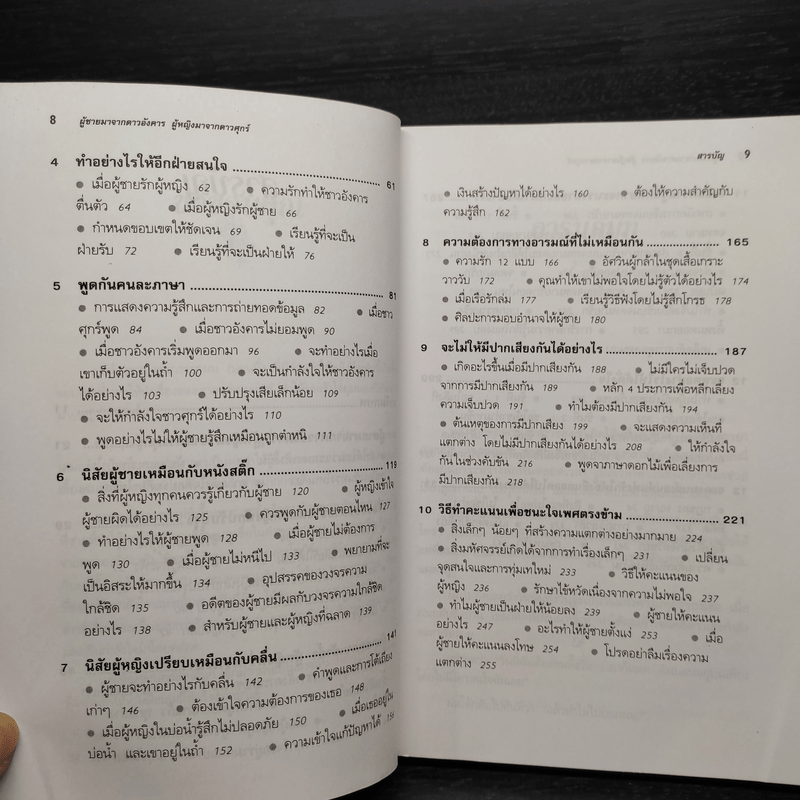 8 ผู้ชายมาจากดาวอังคาร ผู้หญิงมาจากดาวศุกร์
4 ทำอย่างไรให้อีกฝ่ายสนใจ ........................................ 61
● เมื่อผู้ชายรักผู้หญิง 62 ● ความรักทำให้ชาวอังคาร
ตื่นตัว 64 ● เมื่อผู้หญิงรักผู้ชาย 66
● กำหนดขอบเขตให้ชัดเจน 69 ● เรียนรู้ที่จะเป็น
ฝ่ายรับ 72 ● เรียนรู้ที่จะเป็นฝ่ายให้ 76
5 พูดกันคนละภาษา ........................................ 81
● การแสดงความรู้สึกและการถ่ายทอดข้อมูล 82 ● เมื่อชาว
ศุกร์พูด 84 ● เมื่อชาวอังคารไม่ยอมพูด 90
● เมื่อชาวอังคารเริ่มพูดออกมา 96 ● จะทำอย่างไรเมื่อ
เขาเก็บตัวอยู่ในถ้ำ 100 ● จะเป็นกำลังใจให้ชาวอังคาร
ได้อย่างไร 103 ● ปรับปรุงเสียเล็กน้อย 109
● จะให้กำลังใจชาวศุกร์ได้อย่างไร 110
● พูดอย่างไรไม่ให้ผู้ชายรู้สึกเหมือนถูกตำหนิ 111
6 นิสัยผู้ชายเหมือนกับหนังสติ๊ก ........................................ 119
● สิ่งที่ผู้หญิงทุกคนควรรู้เกี่ยวกับผู้ชาย 120 ● ผู้หญิงเข้าใจ
ผู้ชายผิดได้อย่างไร 125 ● ควรพูดกับผู้ชายตอนไหน 127
● ทำอย่างไรให้ผู้ชายพูด 128 ● เมื่อผู้ชายไม่ต้องการ
พูด 130 ● เมื่อผู้ชายไม่หนีไป 133 ● พยายามที่จะ
เป็นอิสระให้มากขึ้น 134 ● อุปสรรคของวงจรความ
ใกล้ชิด 135 ● อดีตของผู้ชายมีผลกับวงจรความใกล้ชิด
อย่างไร 138 ● สำหรับผู้ชายและผู้หญิงที่ฉลาด 139
7 นิสัยผู้หญิงเปรียบเหมือนกับคลื่น ........................................ 141
● ผู้ชายจะทำอย่างไรกับคลื่น 142 ● คำพูดและการโต้เถียง
เก่าๆ 146 ● ต้องเข้าใจความต้องการของเธอ 148
● เมื่อผู้หญิงในบ่อน้ำรู้สึกไม่ปลอดภัย 150 ● เมื่อเธออยู่ใน
บ่อน้ำ และเขาอยู่ในถ้ำ 152 ● ความเข้าใจแก้ปัญหาได้
สารบัญ 9
● เงินสร้างปัญหาได้อย่างไร 160 ● ต้องให้ความสำคัญกับ
ความรู้สึก 162
8 ความต้องการทางอารมณ์ที่ไม่เหมือนกัน .................... 165
● ความรัก 12 แบบ 166 ● อัศวินผู้กล้าในชุดเสื้อเกราะ
วาววับ 172 ● คุณทำให้เขาไม่พอใจโดยไม่รู้ตัวได้อย่างไร 174
● เมื่อเรือรักล่ม 177 ● เรียนรู้วิธีฟังโดยไม่รู้สึกโกรธ 178
● ศิลปะการมอบอำนาจให้ผู้ชาย 180
9 จะไม่ให้มีปากเสียงกันได้อย่างไร .............................. 187
● เกิดอะไรขึ้นเมื่อมีปากเสียงกัน 188 ● ไม่มีใครไม่เจ็บปวด
จากการมีปากเสียงกัน 189 ● หลัก 4 ประการเพื่อหลีกเลี่ยง
ความเจ็บปวด 191 ● ทำไมต้องมีปากเสียงกัน 194
● ต้นเหตุของการมีปากเสียง 199 ● จะแสดงความเห็นที่
แตกต่าง โดยไม่มีปากเสียงกันได้อย่างไร 208 ● ให้กำลังใจ
กันในช่วงคับขัน 216 ● พูดจาภาษาดอกไม้เพื่อเลี่ยงการ
มีปากเสียงกัน 218
10 วิธีทำคะแนนเพื่อชนะใจเพศตรงข้าม .................... 221
● สิ่งเล็กๆ น้อยๆ ที่สร้างความแตกต่างอย่างมากมาย 224
● สิ่งมหัศจรรย์เกิดได้จากการทำเรื่องเล็กๆ 231 ● เปลี่ยน
จุดสนใจและการทุ่มเทใหม่ 233 ● วิธีให้คะแนนของ
ผู้หญิง 236 ● รักษาไข้หวัดเนื่องจากความไม่พอใจ 237
● ทำไมผู้ชายเป็นฝ่ายให้น้อยลง 239 ● ผู้ชายให้คะแนน
อย่างไร 247 ● อะไรทำให้ผู้ชายตั้งแง่ 253 ● เมื่อ
ผู้ชายให้คะแนนลงโทษ 254 ● โปรดอย่าลืมเรื่องความ
แตกต่าง 255